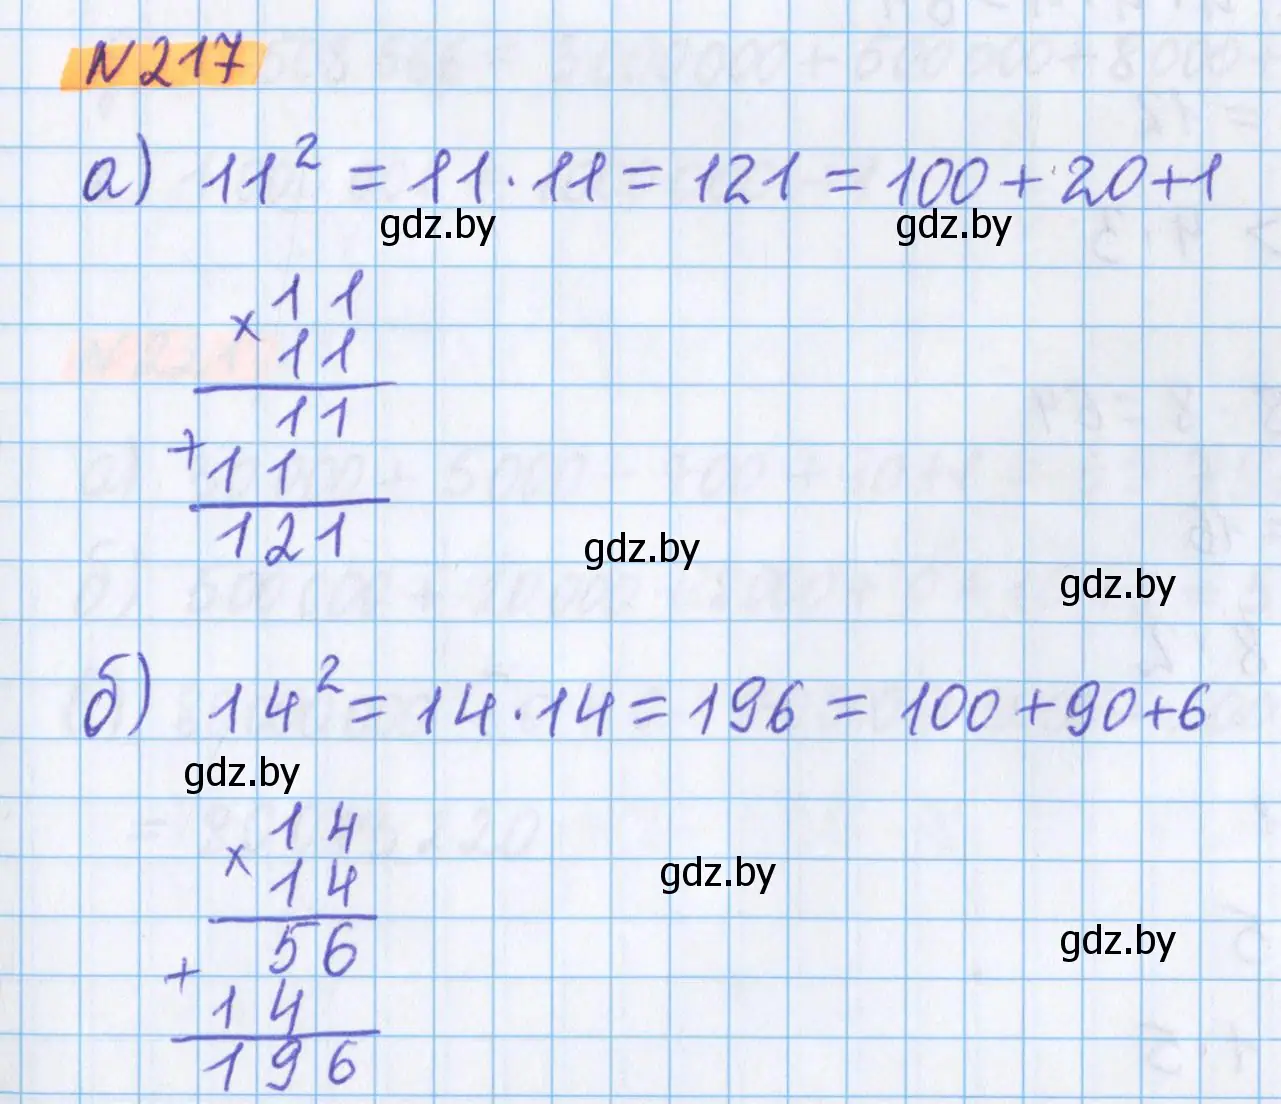 N217
а) 11² = 11 · 11 = 121 = 100 + 20 + 1
gdz.by gdz.by
11
×
11
11
+
11
121
gdz.by
gdz.by
б) 14² = 14 · 14 = 196 = 100 + 90 + 6
gdz.by
14
×
14
gdz.by
56
gdz.by
+
14
196